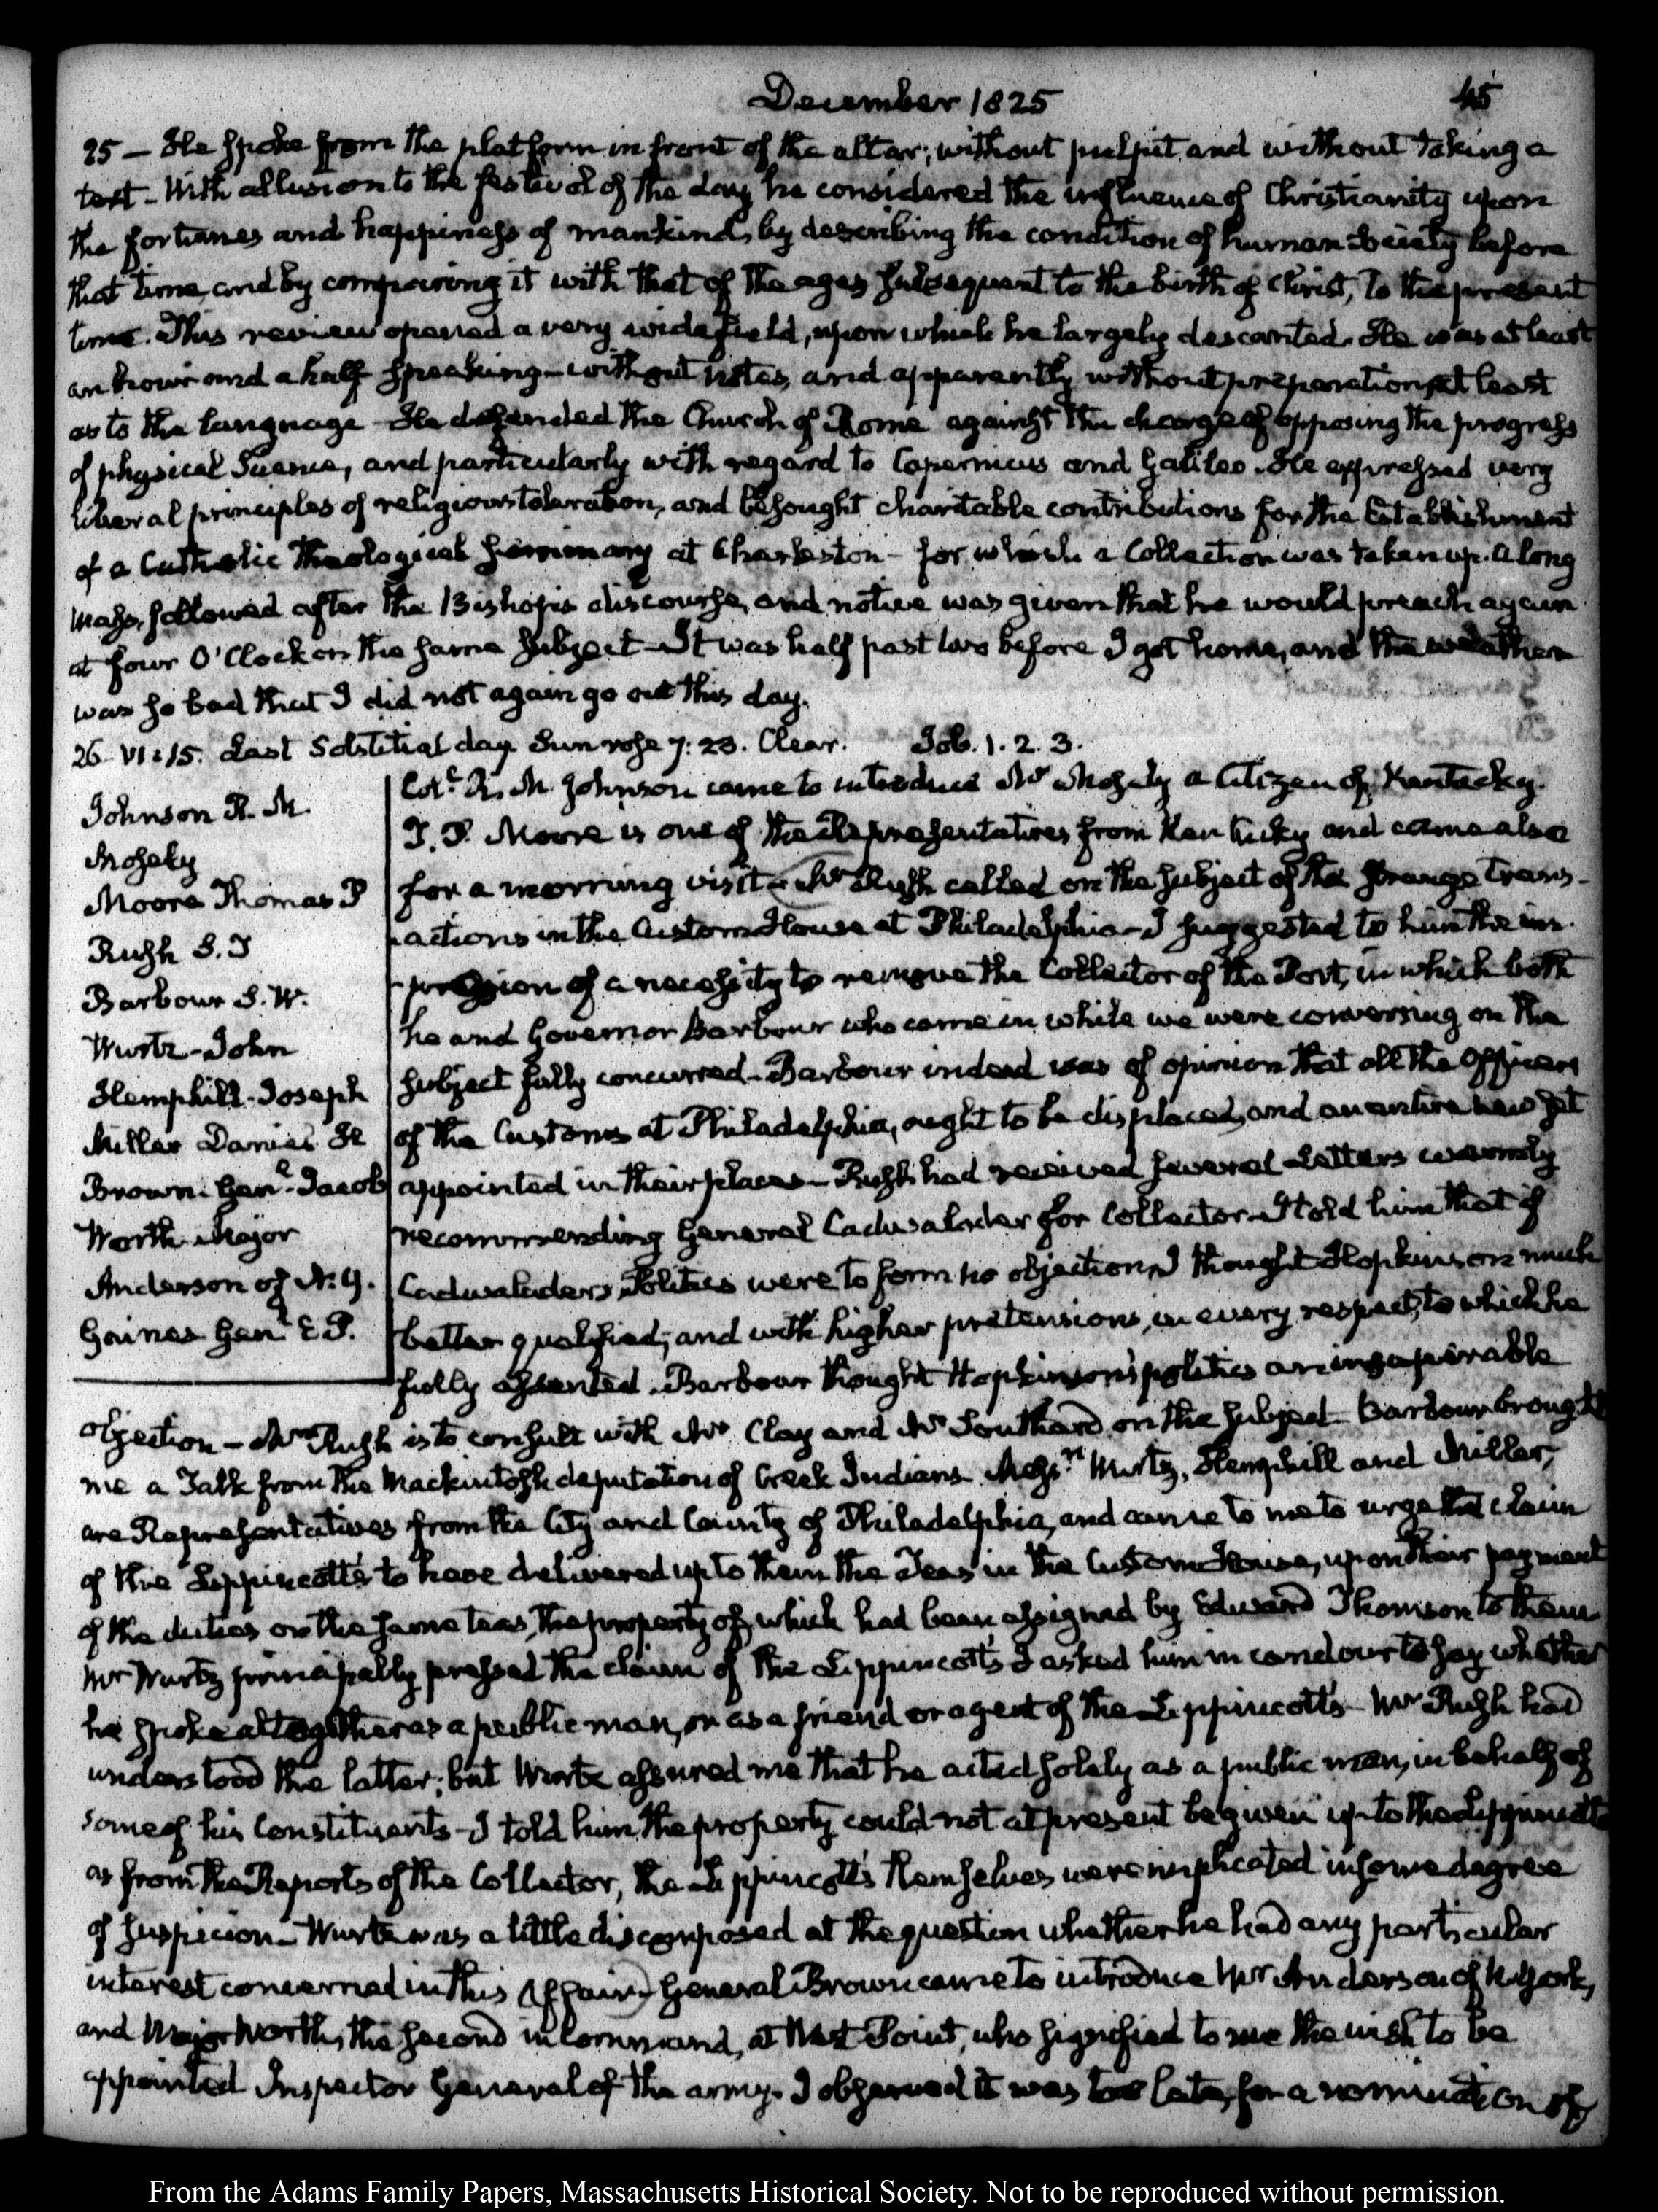 December 1825
45
25 – He spoke from the platform in front of the altar; without pulpit and without taking a
text – With allusion to the festival of the day he considered the influence of Christianity upon
the fortunes and happiness of mankind, by describing the condition of human Society before
that time, and by comparing it with that of the ages subsequent to the birth of Christ, to the present
time. This review opened a very wide field, upon which he largely descanted. He was at least
an hour and a half speaking – without notes, and apparently without preparation, at least
as to the language – He defended the Church of Rome against the charge of opposing the progress
of physical Science, and particularly with regard to Copernicus and Galileo. He expressed very
liberal principles of religious toleration, and besought charitable contributions for the Establishment
of a Catholic Theological Seminary at Charleston – for which a Collection was taken up. A long
Mass, followed after the Bishop's discourse, and notice was given that he would preach again
at four O'Clock on the same subject – It was half past two before I got home, and the weather
was so bad that I did not again go out this day.
26. VI:15. Last Solstitial day. Sun rose 7:23. Clear. Job. 1. 2. 3.
Johnson R. M.
Mosely
Moore Thomas P
Rush S. T
Barbour S. W.
Wurtz – John
Hemphill – Joseph
Miller Daniel H
Brown. Genl. Jacob
Worth Major
Anderson of N.Y.
Gaines Genl E. P.
Coll. R. M. Johnson came to introduce Mr Mosely a Citizen of Kentucky.
T. P. Moore is one of the Representatives from Kentucky and came also
for a morning visit – Mr Rush called on the subject of the strange trans-
actions in the Custom House at Philadelphia – I suggested to him the im-
pression of a necessity to remove the Collector of the Port, in which both
he and Governor Barbour who came in while we were conversing on the
subject fully concurred – Barbour indeed was of opinion that all the Officers
of the Customs at Philadelphia, ought to be displaced, and an entire new set
appointed in their places – Rush had received several Letters warmly
recommending General Cadwalader for Collector – I told him that if
Cadwaladers Politics were to form no objection, I thought Hopkinson much
better qualified, and with higher pretensions, in every respect, to which he
fully assented. Barbour thought Hopkinson's politics an insuperable
objection – Mr Rush is to consult with Mr Clay and Mr Southard on the subject – Barbour brought
me a Talk from the Mackintosh deputation of Creek Indians. Messrs Wurtz, Hemphill and Miller,
are Representatives from the City and County of Philadelphia, and came to me to urge the claim
of the Lippincotts to have delivered up to them the Teas in the Custom House, upon their payment
of the duties on the same teas, the property of which had been assigned by Edward Thomson to them
Mr Wurtz principally pressed the claim of the Lippincotts I asked him in candour to say whether
he spoke altogether as a public man, or as a friend or agent of the Lippincotts – Mr Rush had
understood the latter; but Wurtz assured me that he acted solely as a public man, in behalf of
some of his Constituents – I told him the property could not at present be given up to the Lippincotts
as from the Reports of the Collector, the Lippincotts themselves were implicated in some degree
of suspicion – Wurtz was a little discomposed at the question whether he had any particular
interest concerned in this Affair – General Brown came to introduce Mr Anderson of N. York,
and Major Worth, the second in Command, at West Point, who signified to me the wish to be
appointed Inspector General of the army. I observed it was too late, for a nomination of
From the Adams Family Papers, Massachusetts Historical Society. Not to be reproduced without permission.